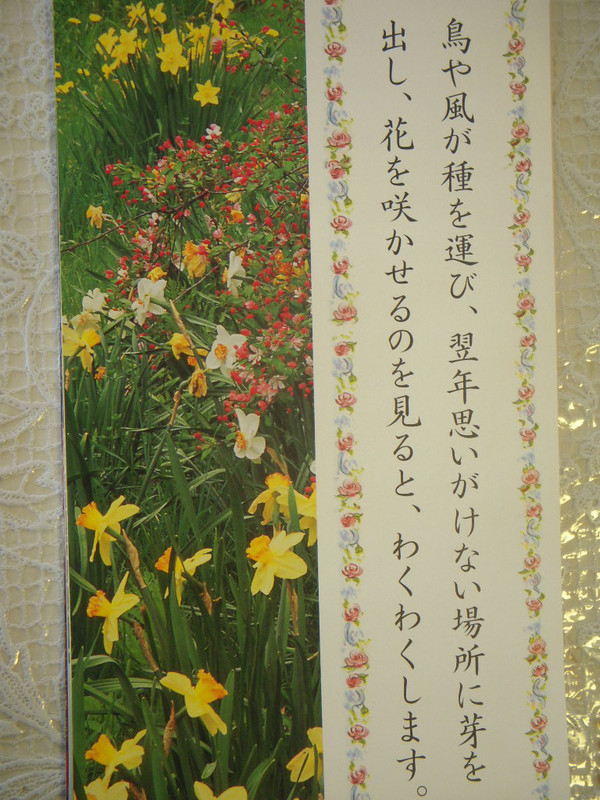 鳥や風が種を運び、翌年思いがけない場所に芽を
出し、花を咲かせるのを見ると、わくわくします。